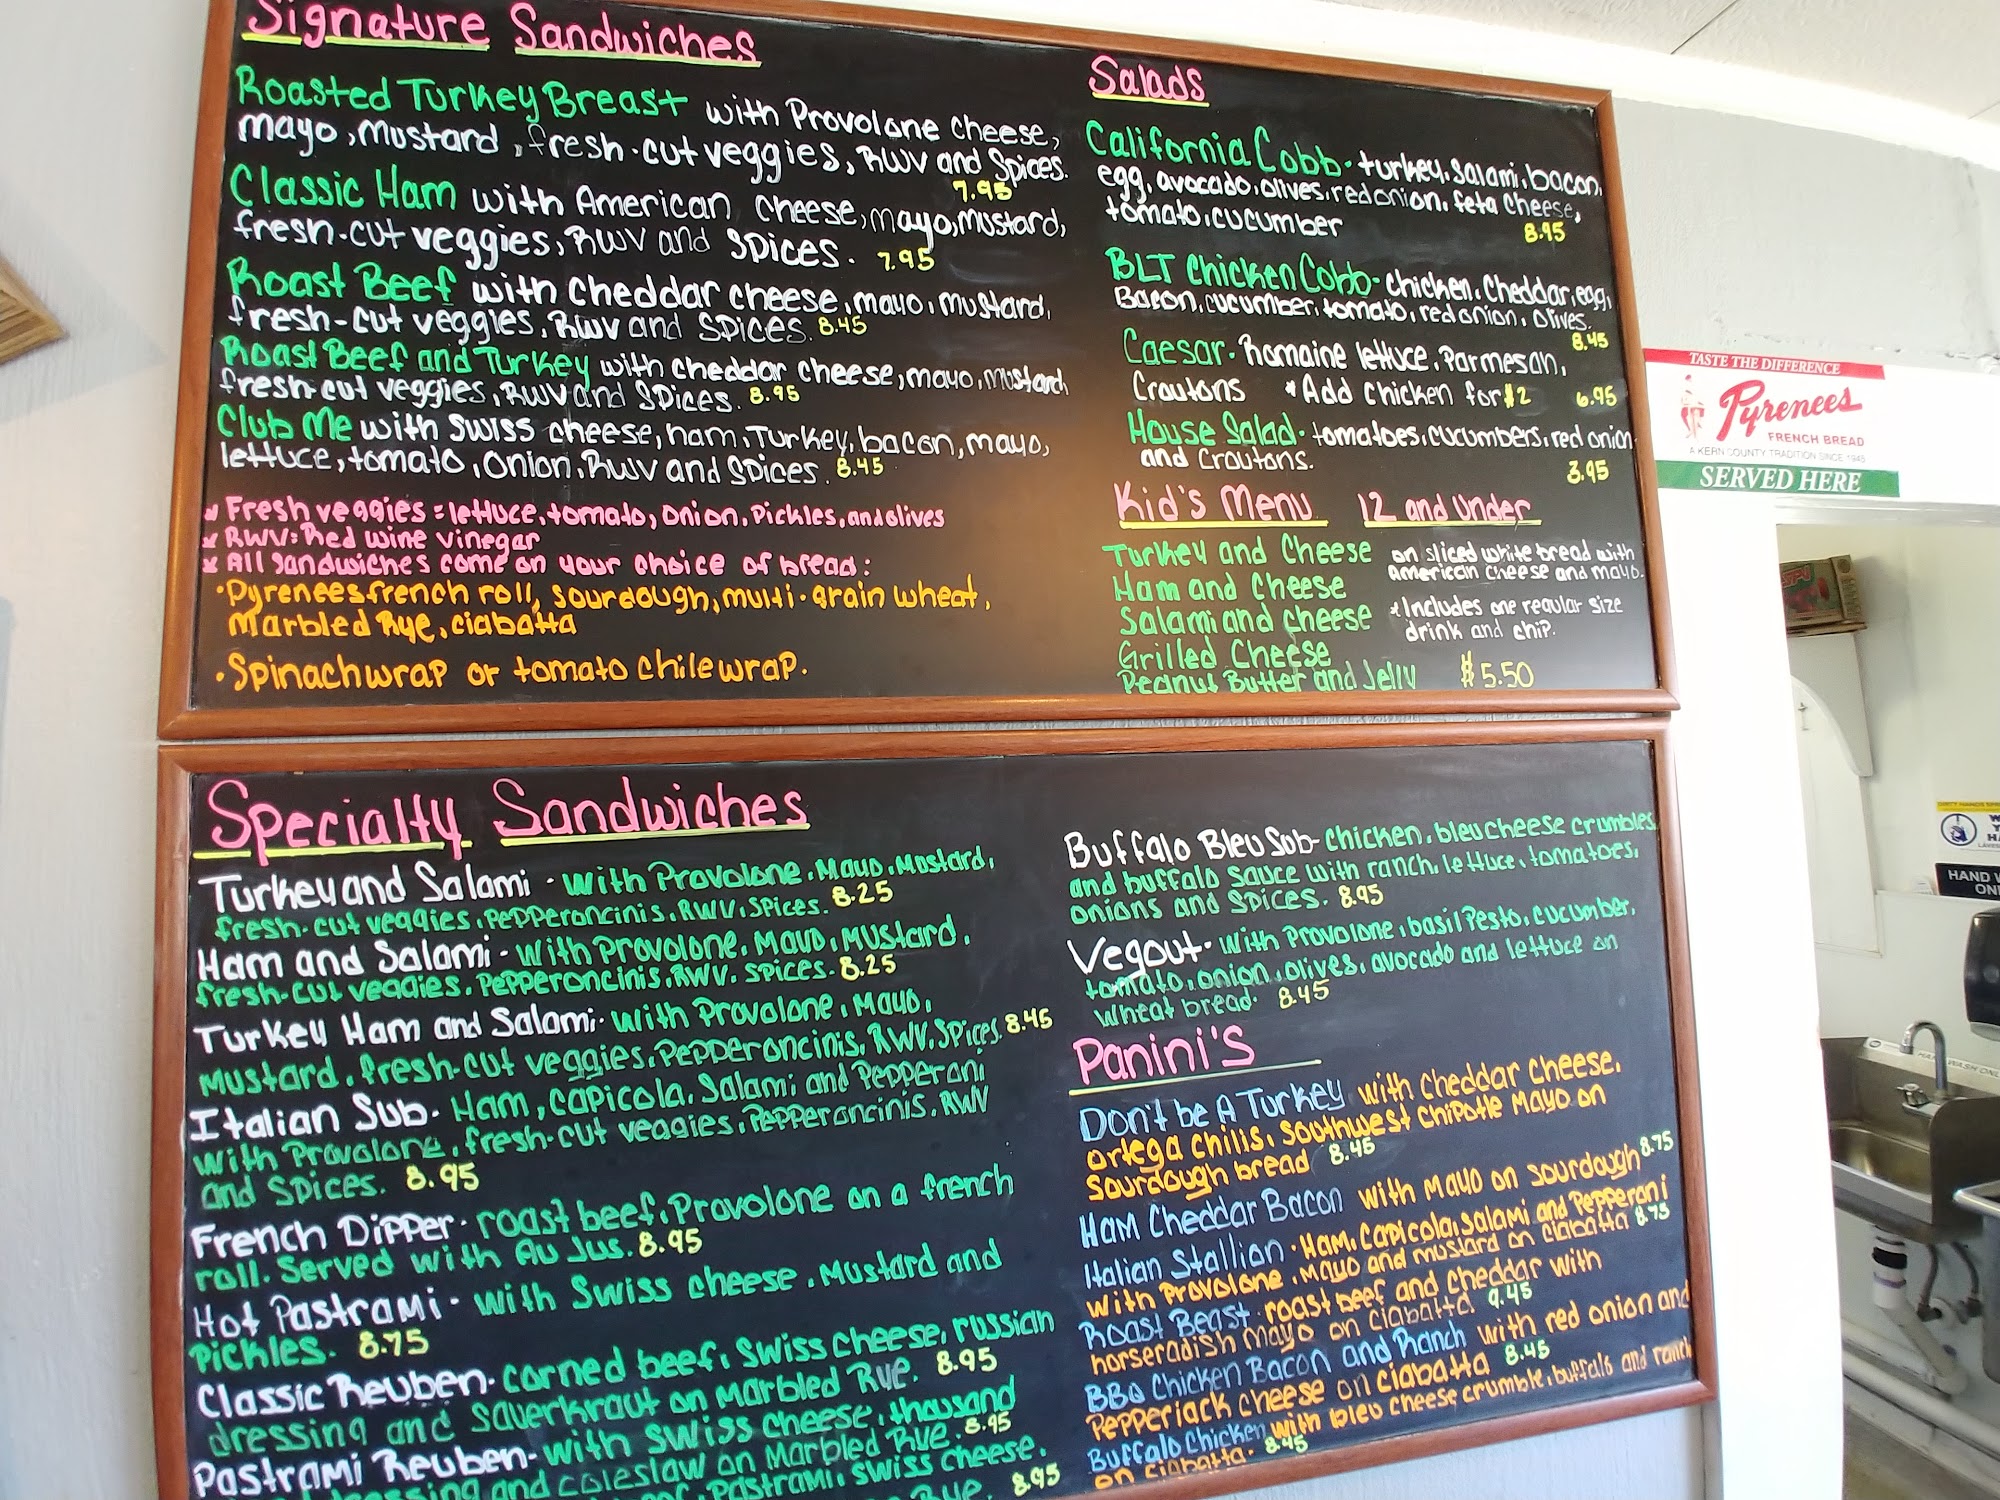 Signature Sandwiches
Roasted Turkey Breast with Provolone cheese,
mayo, mustard, fresh-cut veggies, RWV and Spices.
7.95
Classic Ham with American cheese, mayo, mustard,
fresh-cut veggies, RWV and Spices. 7.95
Roast Beef with cheddar cheese, mayo, mustard,
fresh-cut veggies, RWV and Spices. 8.45
Roast Beef and Turkey with cheddar cheese, mayo, mustard
fresh-cut veggies, RWV and Spices. 8.95
Club Me with Swiss cheese, ham, Turkey, bacon, mayo,
lettuce, tomato, onion, RWV and Spices. 8.45
* Fresh veggies = lettuce, tomato, onion, Pickles, and olives
* RWV: Red wine vinegar
* All sandwiches come on your choice of bread:
• Pyrenees french roll, sourdough, multi-grain wheat,
Marbled Rye, ciabatta
• Spinach wrap or tomato chile wrap.
Salads
California Cobb - turkey, Salami, bacon,
egg, avocado, olives, red onion, feta cheese,
tomato, cucumber 8.95
BLT Chicken Cobb - chicken, cheddar, egg,
Bacon, cucumber, tomato, red onion, olives.
8.45
Caesar - Romaine lettuce, Parmesan,
Croutons * Add Chicken for $2 6.95
House Salad - tomatoes, cucumbers, red onion
and Croutons. 3.95
Kid's Menu 12 and Under
Turkey and Cheese
Ham and Cheese
Salami and Cheese
Grilled Cheese
Peanut Butter and Jelly
on sliced white bread with
American cheese and mayo.
*Includes one regular size
drink and chip.
$5.50
TASTE THE DIFFERENCE
Pyrenees
FRENCH BREAD
A KERN COUNTY TRADITION SINCE 1945
SERVED HERE
Specialty Sandwiches
Turkey and Salami - with Provolone, Mayo, Mustard,
fresh-cut veggies, Pepperoncinis, RWV, Spices. 8.25
Ham and Salami - with Provolone, Mayo, Mustard,
fresh-cut veggies, Pepperoncinis, RWV, spices. 8.25
Turkey Ham and Salami - with Provolone, Mayo,
Mustard, fresh-cut veggies, Pepperoncinis, RWV, Spices. 8.45
Italian Sub - Ham, capicola, Salami and Pepperoni
with Provolone, fresh-cut veggies, Pepperoncinis, RWV
and Spices. 8.95
French Dipper - roast beef, Provolone on a french
roll. Served with Au Jus. 8.95
Hot Pastrami - with Swiss cheese, Mustard and
Pickles. 8.75
Classic Reuben - corned beef, Swiss cheese, russian
dressing and Sauerkraut on Marbled Rye. 8.95
Pastrami Reuben - with Swiss cheese, thousand
dressing and coleslaw on Marbled Rye. 8.95
Pastrami, Swiss cheese,
Rye. 8.95
Buffalo Bleu Sub - chicken, bleu cheese crumbles
and buffalo sauce with ranch, lettuce, tomatoes,
onions and Spices. 8.95
Vegout - with Provolone, basil Pesto, cucumber,
tomato, onion, olives, avocado and lettuce on
wheat bread. 8.45
Panini's
Don't be A Turkey with cheddar cheese,
ortega chilis, Southwest Chipotle Mayo on
Sourdough bread 8.45
Ham Cheddar Bacon with Mayo on sourdough 8.75
Italian Stallion - Ham, Capicola, Salami and Pepperoni
with Provolone, Mayo and mustard on ciabatta 8.75
Roast Beast - roast beef and cheddar with
horseradish mayo on ciabatta 9.45
BBQ Chicken Bacon and Ranch with red onion and
Pepperjack cheese on ciabatta 8.45
Buffalo Chicken with bleu cheese crumble, buffalo and ranch
on ciabatta. 8.45